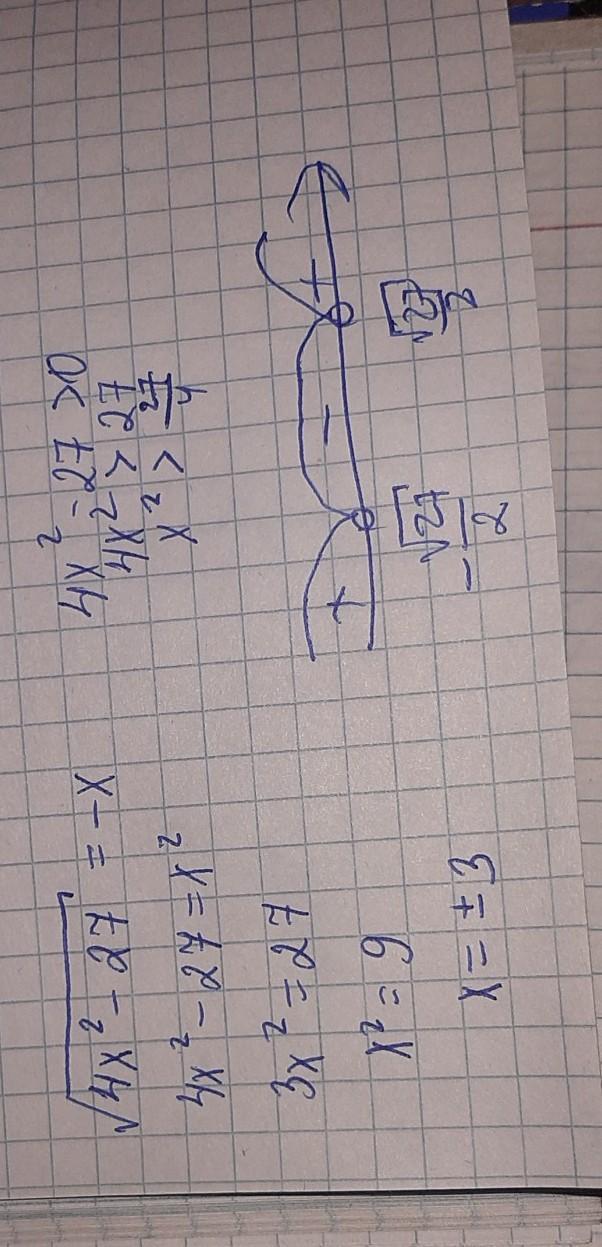 √4x² - 27 = -x
4x² - 27 = x²
3x² = 27
x² = 9
x = ± 3
4x² - 27 > 0
4x² > 27
x² > 27/4
+ - +
-√27/2 √27/2